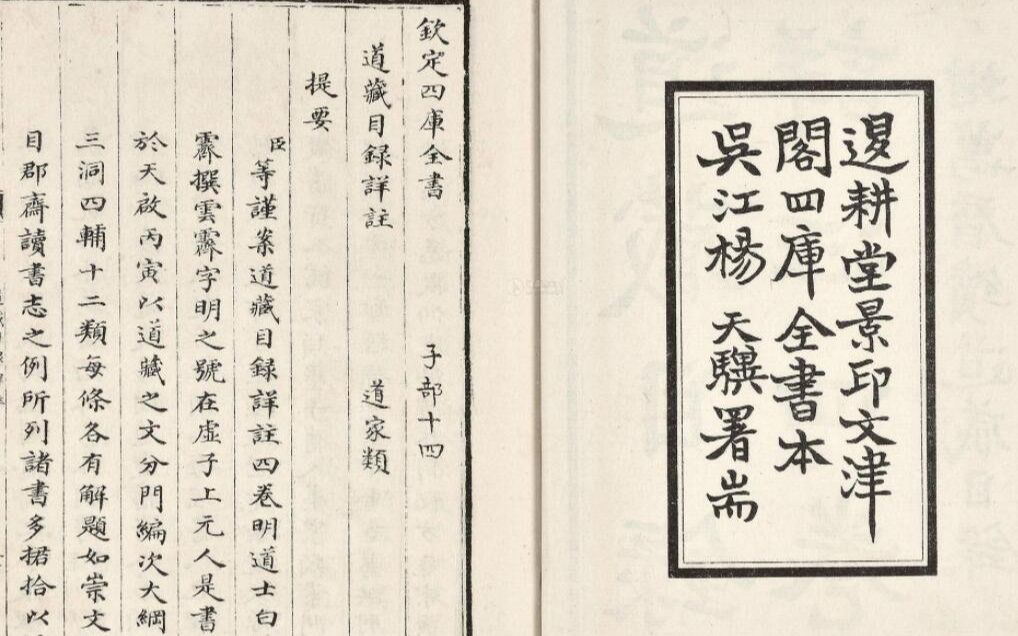 退耕堂景印文津
閣四庫全書本
吳江楊天驥署耑
欽定四庫全書 子部十四
道藏目録詳註 道家類
提要
臣等謹案道藏目録詳註四卷明道士白
霽撰雲霽字明之號在虛子上元人是書
於天啟丙寅以道藏之文分門編次大綱
三洞四輔十二類每條各有解題如崇文
目郡齋讀書志之例所列諸書多捃拾以